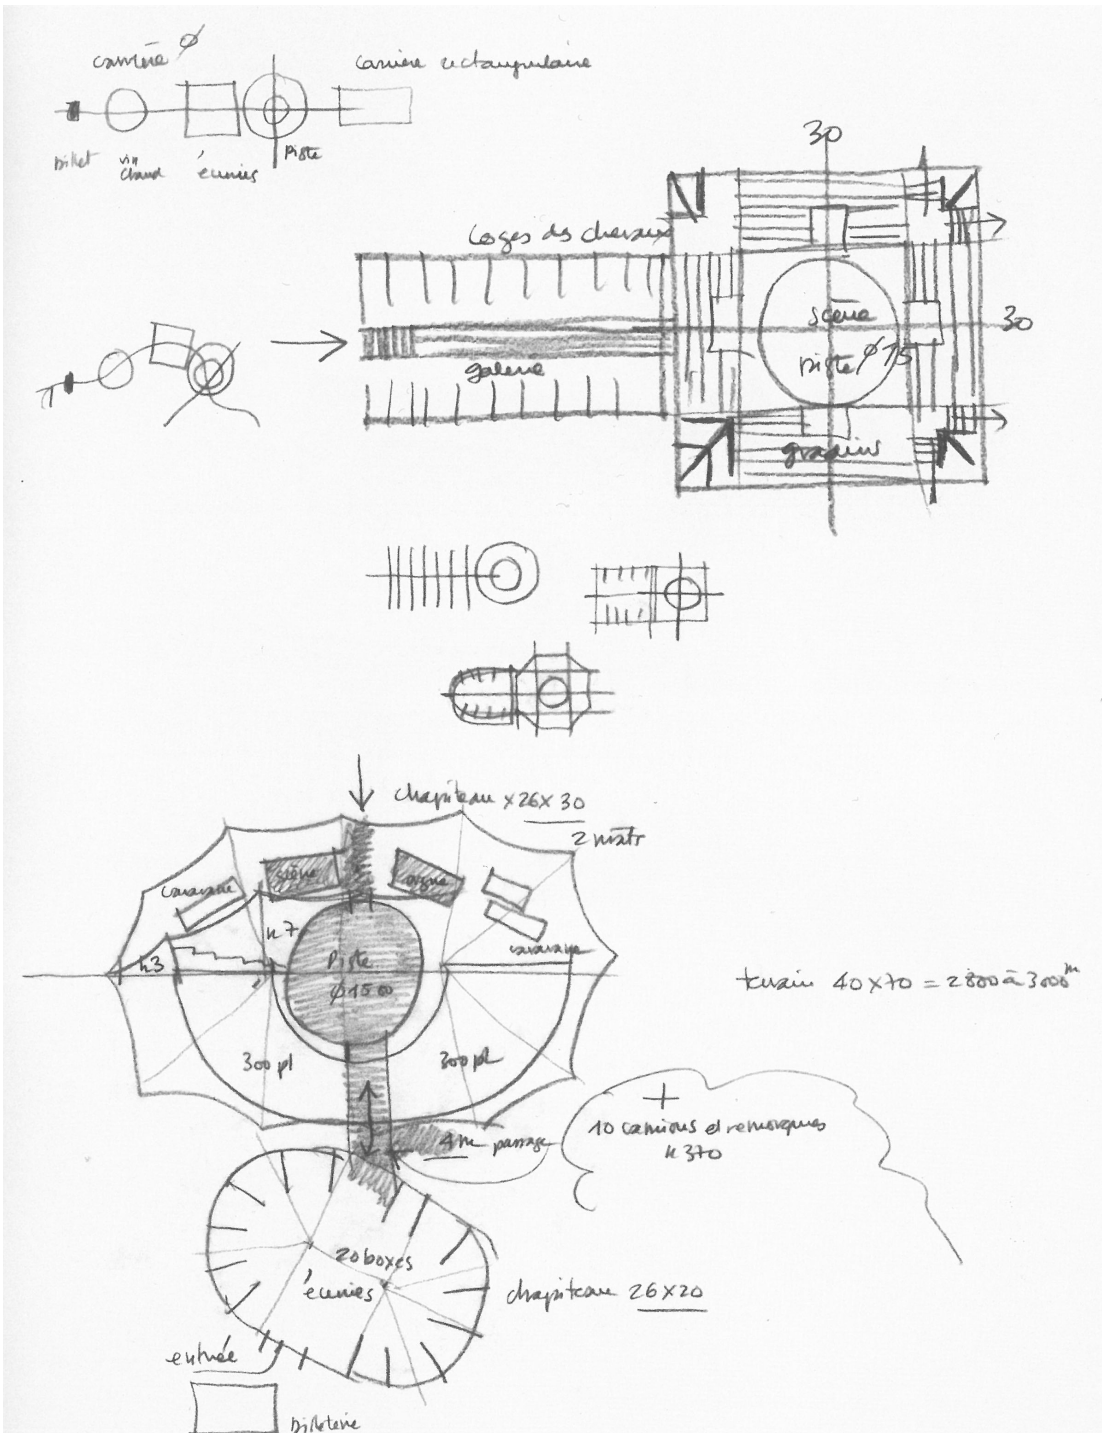 carrière Ø
carrière rectangulaire
billet
vin
chaud
écuries
Piste
30
Loges des chevaux
scène
30
piste Ø 15
galerie
gradins
chapiteau x 26 x 30
2 mâts
caravane
scène
h7
h3
caravane
Piste
Ø 1500
terrain 40 x 70 = 2800 à 3000 m
300 pl
300 pl
4m passage
+
10 camions et remorques
20 boxes
écuries
chapiteau 26 x 20
entrée
billeterie